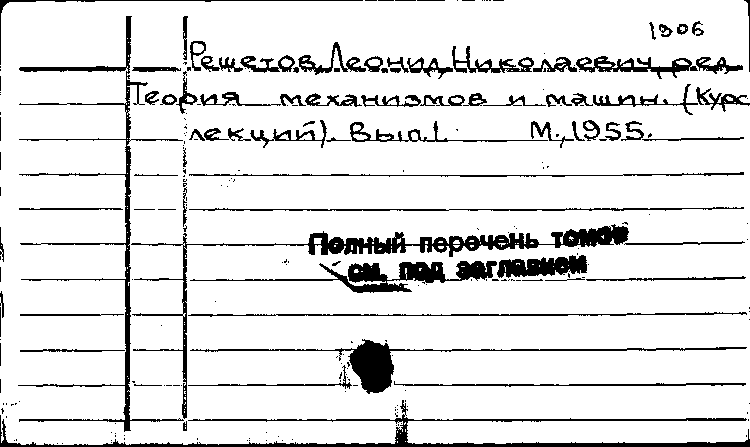 1906
Решетов, Леонид Николаевич, ред.
Теория механизмов и машин. (Курс
лекций). Вып.1. М., 1955.
Полный перечень томов
см. под заглавием